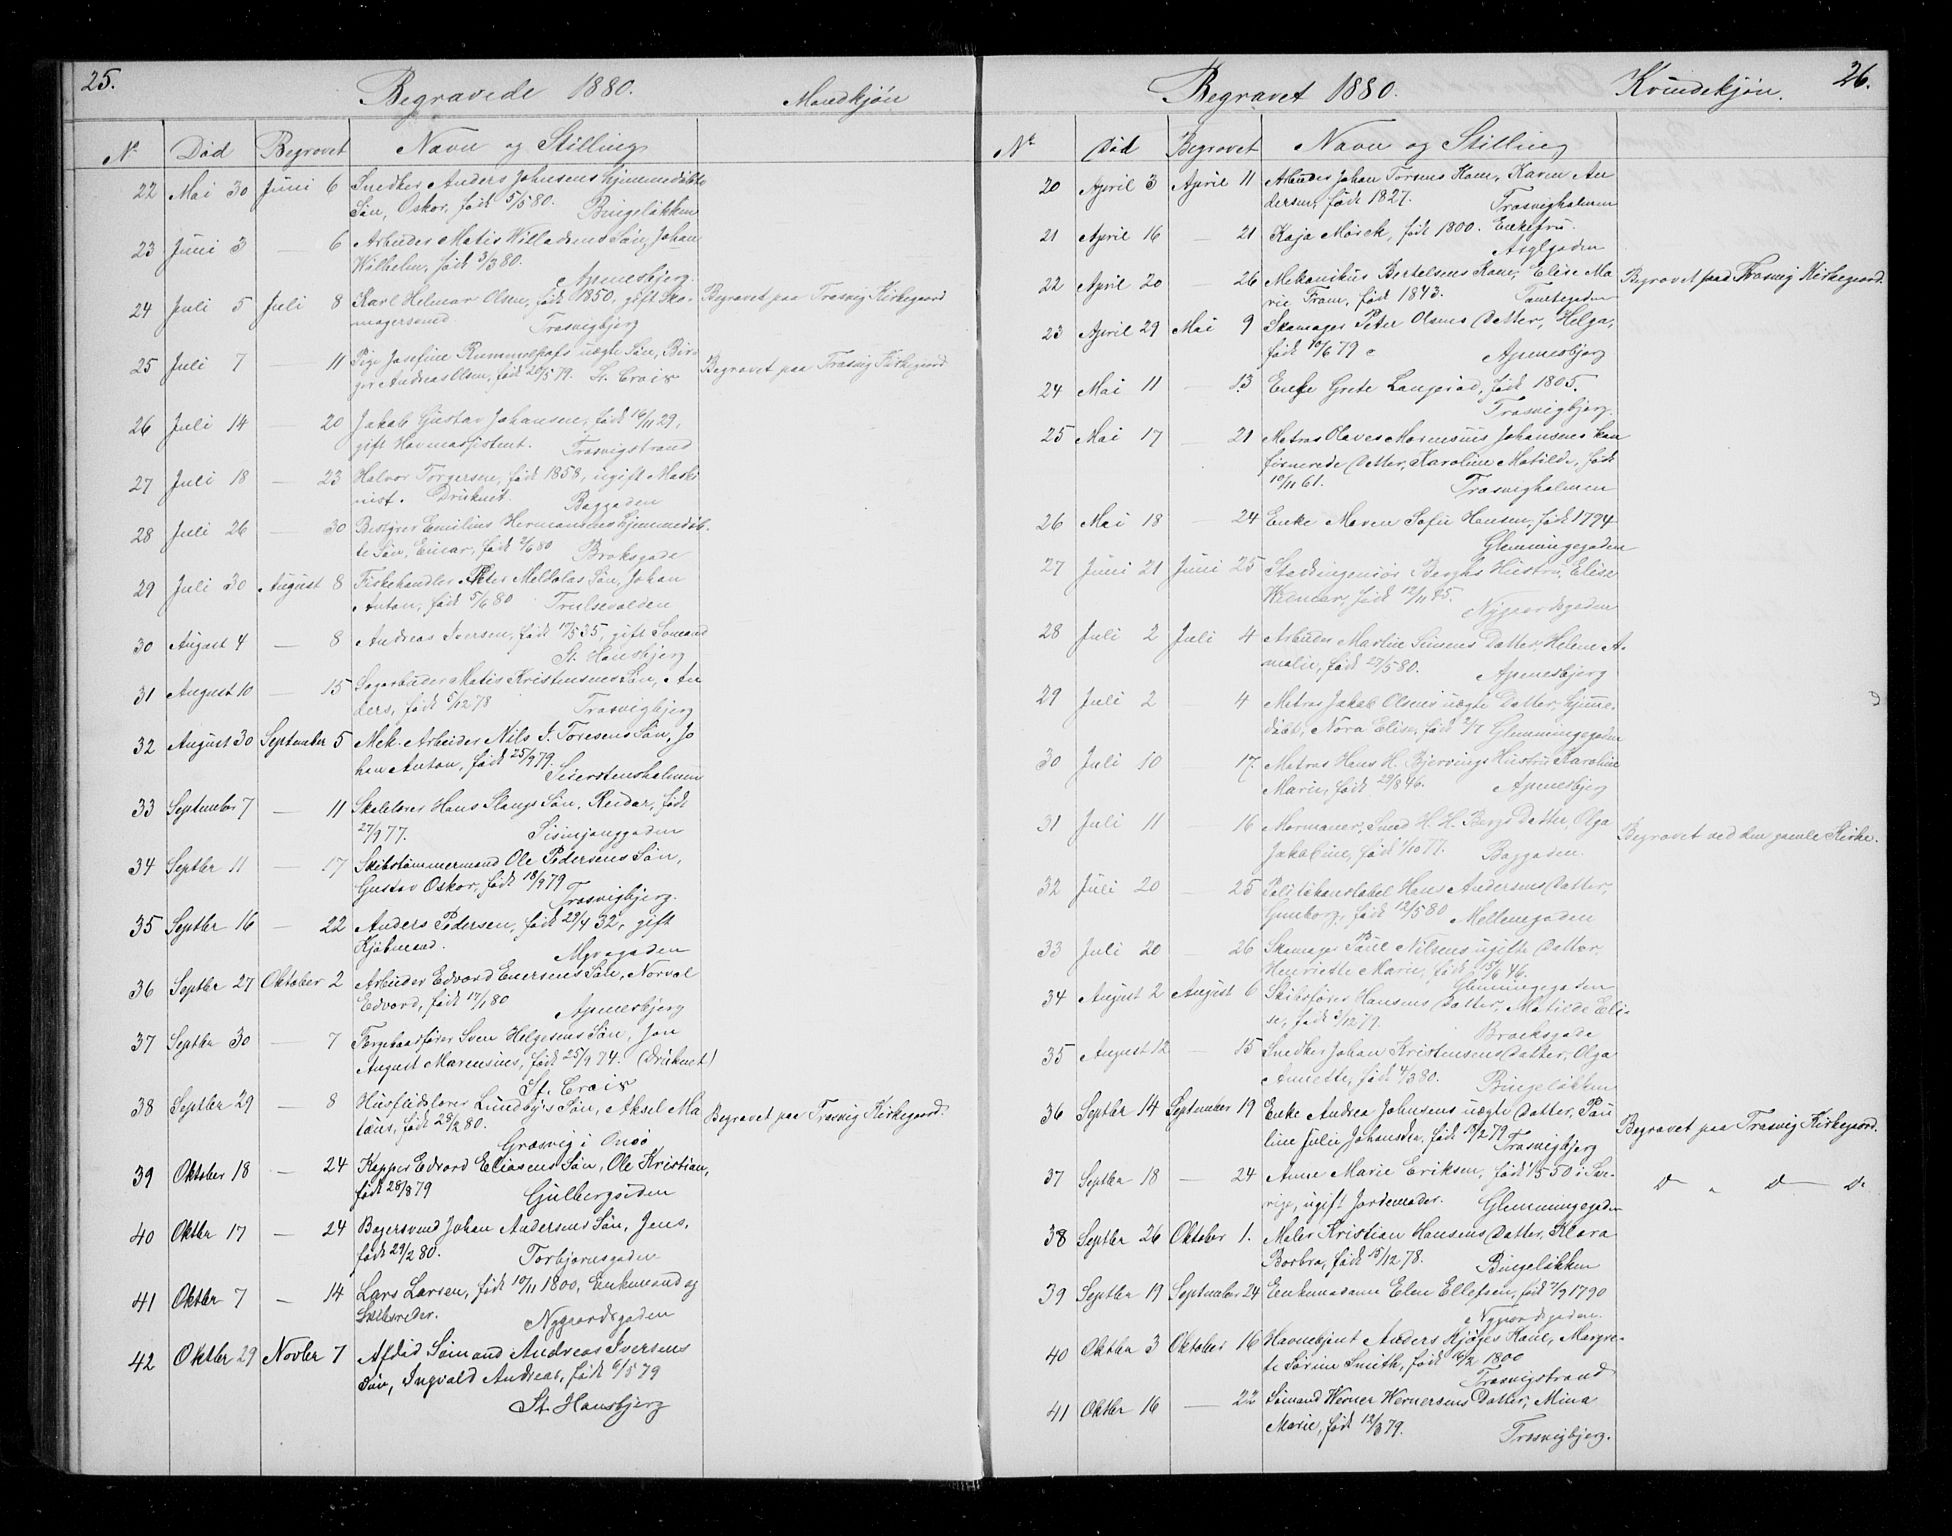 25.
Begravede 1880.
Mandkjön
Nr Död Begravet Navn og Stilling
22 Mai 30 Juni 6 Snedker Anders Johnsens hjemmedöbte
Sön, Oskar, födt 5/5 80. Bingeløkken
23 Juni 3 — 6 Arbeider Matis Willadsens Sön, Johan
Wilhelm, födt 3/3 80.
Apenesbjerg
24 Juli 5 Juli 8 Karl Helmar Olsen, födt 1850, gift Sko- Begravet paa Trosvig Kirkegaard
magersvend Trosvigbjerg
25 Juli 7 — 11 Pige Josefine uægte Sön, Bir- Begravet paa Trosvig Kirkegaard
ger Andreas Olsen, födt 20/5 79. St. Croix
26 Juli 14 — 20 Jakob Gustav Johansen, födt 16/11 29,
gift Havneassistent. Trosvigstrand
27 Juli 18 — 23 Halvor Torgersen, födt 1858, ugift Maski
nist. Druknet. Baggaden
28 Juli 26 — 30 Emilius Hermansens hjemmedöb-
te Sön, Einar, födt 2/6 80 Broksgade
29 Juli 30 August 8 Fiskehandler Peter Meldolas Sön, Johan
Anton, födt 5/6 80 Trulsevolden
30 August 4 — 8 Andreas Iversen, födt 17/5 35, gift Sömand
St. Hansbjerg
31 August 10 — 15 Sagarbeider Matis Kristensens Sön, An
ders, födt 5/12 78 Trosvigbjerg
32 August 30 September 5 Mek. Arbeider Nils J. Toresens Sön, Jo
han Anton, födt 25/9 79.
33 September 7 — 11 Skolelærer Hans Slangs Sön, Reidar, födt
27/9 77.
34 Septbr 11 — 17 Skibstömmermand Ole Pedersens Sön,
Gustav Oskar, födt 18/9 79
Trosvigbjerg.
35 Septbr 16 — 22 Anders Pedersen, födt 29/4 32, gift
Kjöbmand.
36 Septbr 27 Oktober 2 Arbeider Edvard Enersens Sön, Norval
Edvard, födt 17/1 80
Apenesbjerg
37 Septbr 30 — 7 Færgebaadförer Sven Helgesens Sön, Jon
August Marensius, födt 25/9 74. (Druknet)
St. Croix
38 Septbr 29 — 8 Husflidslærer Lundbys Sön, Aksel Ma Begravet paa Trosvig Kirkegaard.
taus, födt 28/2 80.
Græsvig i Onsö
39 Oktober 18 — 24 Kapper Edvard Eliasens Sön, Ole Kristian,
födt 28/8 79 Gulbergsiden
40 Oktbr 17 — 24 Bagersvend Johan Andersens Sön, Jens,
födt 29/2 80. Torbjørnsgaden
41 Oktbr 7 — 14 Lars Larsen, födt 10/11 1800, Enkemand og
Skibsreder. Nygaardsgaden
42 Oktbr 29 Novbr 7 Afdöd Sömand Andreas Iversens
Sön, Ingvald Andreas, födt 6/5 79
St. Hansbjerg
Begravet 1880.
Kvindekjön.
26.
Nr. Död Begravet Navn og Stilling
20 April 3 April 11 Arbeider Johan Torsens Kone, Karen An
dersen, födt 1827. Trosvigholmen
21 April 16 — 21 Kaja Mörck, födt 1800. Enkefru.
Asylgaden
22 April 20 — 26 Mekanikus Bertelsens Kone, Elise Ma Begravet paa Trosvig Kirkegaard.
rie Fram, födt 1843. Tomtegaden
23 April 29 Mai 9 Skomager Peter Olsens Datter, Helga,
födt 10/6 79 Apenesbjerg
24 Mai 11 — 13 Enke Grete Langerød, födt 1805.
Trosvigbjerg.
25 Mai 17 — 21 Matros Olaves Marensius Johansens kon
firmerede Datter, Karoline Matilde, födt
10/11 61. Trosvigholmen
26 Mai 18 — 24 Enke Maren Sofie Hansen, födt 1794
Glemmingegaden
27 Juni 21 Juni 25 Stadsingeniör Berghs Hustru, Elise
födt 12/11 45. Nygaardsgaden
28 Juli 2 Juli 4 Arbeider Martin Simens Datter, Helene A-
malie, födt 27/5 80. Apenesbjerg
29 Juli 2 — 4 Matros Jakob Olsens uægte Datter, hjemme-
döbt, Nora Elise, födt 2/7 Glemmingegaden
30 Juli 10 — 17. Matros Hans H. Bjervings Hustru Karoline
Marie, födt 29/8 46. Apenesbjerg
31 Juli 11 — 16 Mormoner, Smed H. H. Bergs Datter, Olga Begravet ved den gamle Kirke.
Jakobine, födt 1/10 77. Baggaden.
32 Juli 20 — 25 Politikonstabel Hans Andersens Datter,
Gunborg, födt 12/5 80 Mellemgaden
33 Juli 20 — 26 Skomager Paul Nilsens ugifte Datter,
Henriette Marie, födt 15/6 46.
Glemmingegaden
34 August 2 August 6 Skibsförer Hansens Datter, Matilde Eli-
se, födt 3/12 79. Broeksgade
35 August 12 — 15 Snedker Johan Kristensens Datter, Olga
Annette, födt 4/3 80. Bingeløkken
36 Septbr 14 September 19 Enke Andrea Johnsens uægte Datter, Pau Begravet paa Trosvig Kirkegaard.
line Julie Johansen, födt 13/2 79 Trosvigbjerg
37 Septbr 18 — 24 Anne Marie Eriksen, födt 1/5 50 i Sve- do " do do
rige, ugift Jordemoder. Glemmingegaden
38 Septbr 26 Oktober 1. Maler Kristian Hansens Datter, Klara
Barbra, födt 15/12 78. Bingeløkken
39 Septbr 19 September 24 Enkemadame Elen Ellefsen, födt 7/9 1790
Nygaardsgaden.
40 Oktbr 3 Oktober 16 Havnebetjent Anders Kjøges Kone, Margre-
te Sörine Smith, födt 16/2 1800
Trosvigstrand
41 Oktbr 16 — 22 Sömand Werner Wernersens Datter, Mina
Marie, födt 12/3 79. Trosvigbjerg.